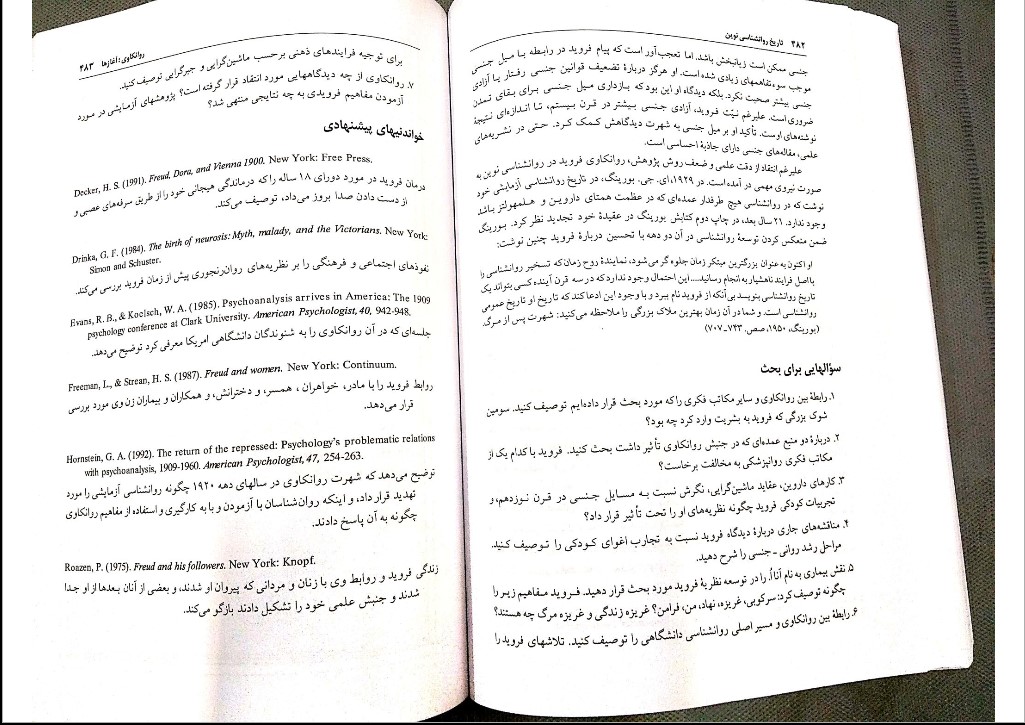 ۴۸۲ تاریخ روانشناسی نوین
جنسی ممکن است زیانبخش باشد. اما تعجب‌آور است که پیام فروید در رابطه با میل جنسی
موجب سوءتفاهمهای زیادی شده است. او هرگز دربارهٔ تضعیف قوانین جنسی رفتار یا آزادی
جنسی بیشتر صحبت نکرد. بلکه دیدگاه او این بود که بازداری میل جنسی برای بقای تمدن
ضروری است. علیرغم نیّت فروید، آزادی جنسی بیشتر در قرن بیستم، تا اندازه‌ای نتیجهٔ
نوشته‌های اوست. تأکید او بر میل جنسی به شهرت دیدگاهش کمک کرد. حتی در نشریه‌های
علمی، مقاله‌های جنسی دارای جاذبهٔ احساسی است.
علیرغم انتقاد از دقت علمی و ضعف روش پژوهش، روانکاوی فروید در روانشناسی نوین به
صورت نیروی مهمی در آمده است. در ۱۹۲۹، ای. جی. بورینگ، در تاریخ روانشناسی آزمایشی خود
نوشت که در روانشناسی هیچ طرفدار عمده‌ای که در عظمت همتای داروین و هلمهولتز باشد
وجود ندارد. ۲۱ سال بعد، در چاپ دوم کتابش بورینگ در عقیدهٔ خود تجدید نظر کرد. بورینگ
ضمن منعکس کردن توسعهٔ روانشناسی در آن دو دهه با تحسین دربارهٔ فروید چنین نوشت:
او اکنون به عنوان بزرگترین مبتکر زمان جلوه گر می‌شود، نمایندهٔ روح زمان که تسخیر روانشناسی را
با اصل فرایند ناهشیار به انجام رسانید.... این احتمال وجود ندارد که در سه قرن آینده کسی بتواند یک
تاریخ روانشناسی بنویسد بی‌آنکه از فروید نام ببرد و با وجود این ادعا کند که تاریخ او تاریخ عمومی
روانشناسی است. و شما در آن زمان بهترین ملاک بزرگی را ملاحظه می‌کنید: شهرت پس از مرگ.
(بورینگ، ۱۹۵۰، صص. ۷۴۳-۷۰۷)
سؤالهایی برای بحث
۱. رابطهٔ بین روانکاوی و سایر مکاتب فکری را که مورد بحث قرار داده‌ایم توصیف کنید. سومین
شوک بزرگی که فروید به بشریت وارد کرد چه بود؟
۲. دربارهٔ دو منبع عمده‌ای که در جنبش روانکاوی تأثیر داشت بحث کنید. فروید با کدام یک از
مکاتب فکری روانپزشکی به مخالفت برخاست؟
۳. کارهای داروین، عقاید ماشین‌گرایی، نگرش نسبت به مسایل جنسی در قرن نوزدهم، و
تجربیات کودکی فروید چگونه نظریه‌های او را تحت تأثیر قرار داد؟
۴. مناقشه‌های جاری دربارهٔ دیدگاه فروید نسبت به تجارب اغوای کودکی را توصیف کنید.
مراحل رشد روانی ـ جنسی را شرح دهید.
۵. نقش بیماری به نام آناأُ را در توسعه نظریهٔ فروید مورد بحث قرار دهید. فروید مفاهیم زیر را
چگونه توصیف کرد: سرکوبی، غریزه، نهاد، من، فرامن؟ غریزه زندگی و غریزه مرگ چه هستند؟
۶. رابطهٔ بین روانکاوی و مسیر اصلی روانشناسی دانشگاهی را توصیف کنید. تلاشهای فروید را
روانکاوی: آغازها ۴۸۳
برای توجیه فرایندهای ذهنی برحسب ماشین‌گرایی و جبرگرایی توصیف کنید.
۷. روانکاوی از چه دیدگاههایی مورد انتقاد قرار گرفته است؟ پژوهشهای آزمایشی در مورد
آزمودن مفاهیم فرویدی به چه نتایجی منتهی شد؟
خواندنیهای پیشنهادی
Decker, H. S. (1991). Freud, Dora, and Vienna 1900. New York: Free Press.
درمان فروید در مورد دورای ۱۸ ساله را که درماندگی هیجانی خود را از طریق سرفه‌های عصبی و
از دست دادن صدا بروز می‌داد، توصیف می‌کند.
Drinka, G. F. (1984). The birth of neurosis: Myth, malady, and the Victorians. New York:
Simon and Schuster.
نفوذهای اجتماعی و فرهنگی را بر نظریه‌های روان‌رنجوری پیش از زمان فروید بررسی می‌کند.
Evans, R. B., & Koelsch, W. A. (1985). Psychoanalysis arrives in America: The 1909
psychology conference at Clark University. American Psychologist, 40, 942-948.
جلسه‌ای که در آن روانکاوی را به شنوندگان دانشگاهی امریکا معرفی کرد توضیح می‌دهد.
Freeman, L., & Strean, H. S. (1987). Freud and women. New York: Continuum.
روابط فروید را با مادر، خواهران، همسر، و دخترانش، و همکاران و بیماران زن وی مورد بررسی
قرار می‌دهد.
Hornstein, G. A. (1992). The return of the repressed: Psychology's problematic relations
with psychoanalysis, 1909-1960. American Psychologist, 47, 254-263.
توضیح می‌دهد که شهرت روانکاوی در سالهای دهه ۱۹۲۰ چگونه روانشناسی آزمایشی را مورد
تهدید قرار داد، و اینکه روان‌شناسان با آزمودن و با به کارگیری و استفاده از مفاهیم روانکاوی
چگونه به آن پاسخ دادند.
Roazen, P. (1975). Freud and his followers. New York: Knopf.
زندگی فروید و روابط وی با زنان و مردانی که پیروان او شدند، و بعضی از آنان بعدها از او جدا
شدند و جنبش علمی خود را تشکیل دادند بازگو می‌کند.